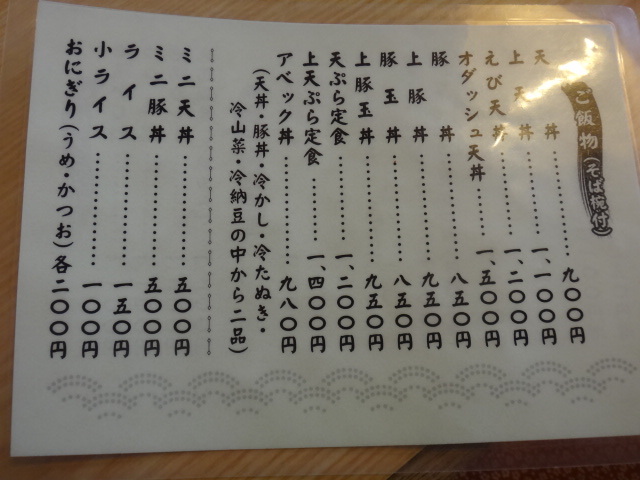 ご飯物(そば椀付)
天丼……………九〇〇円
上天丼……………一、一〇〇円
えび天丼……………一、二〇〇円
オダッシュ天丼……一、五〇〇円
豚丼……………八五〇円
上豚丼……………九五〇円
豚玉丼……………八五〇円
上豚玉丼……………九五〇円
天ぷら定食…………一、二〇〇円
上天ぷら定食………一、四〇〇円
アベック丼……………九八〇円
(天丼・豚丼・冷かし・冷たぬき・
冷山菜・冷納豆の中から二品)
ミニ天丼……………五〇〇円
ミニ豚丼……………五〇〇円
ライス……………一五〇円
小ライス……………一〇〇円
おにぎり(うめ・かつお)各二〇〇円